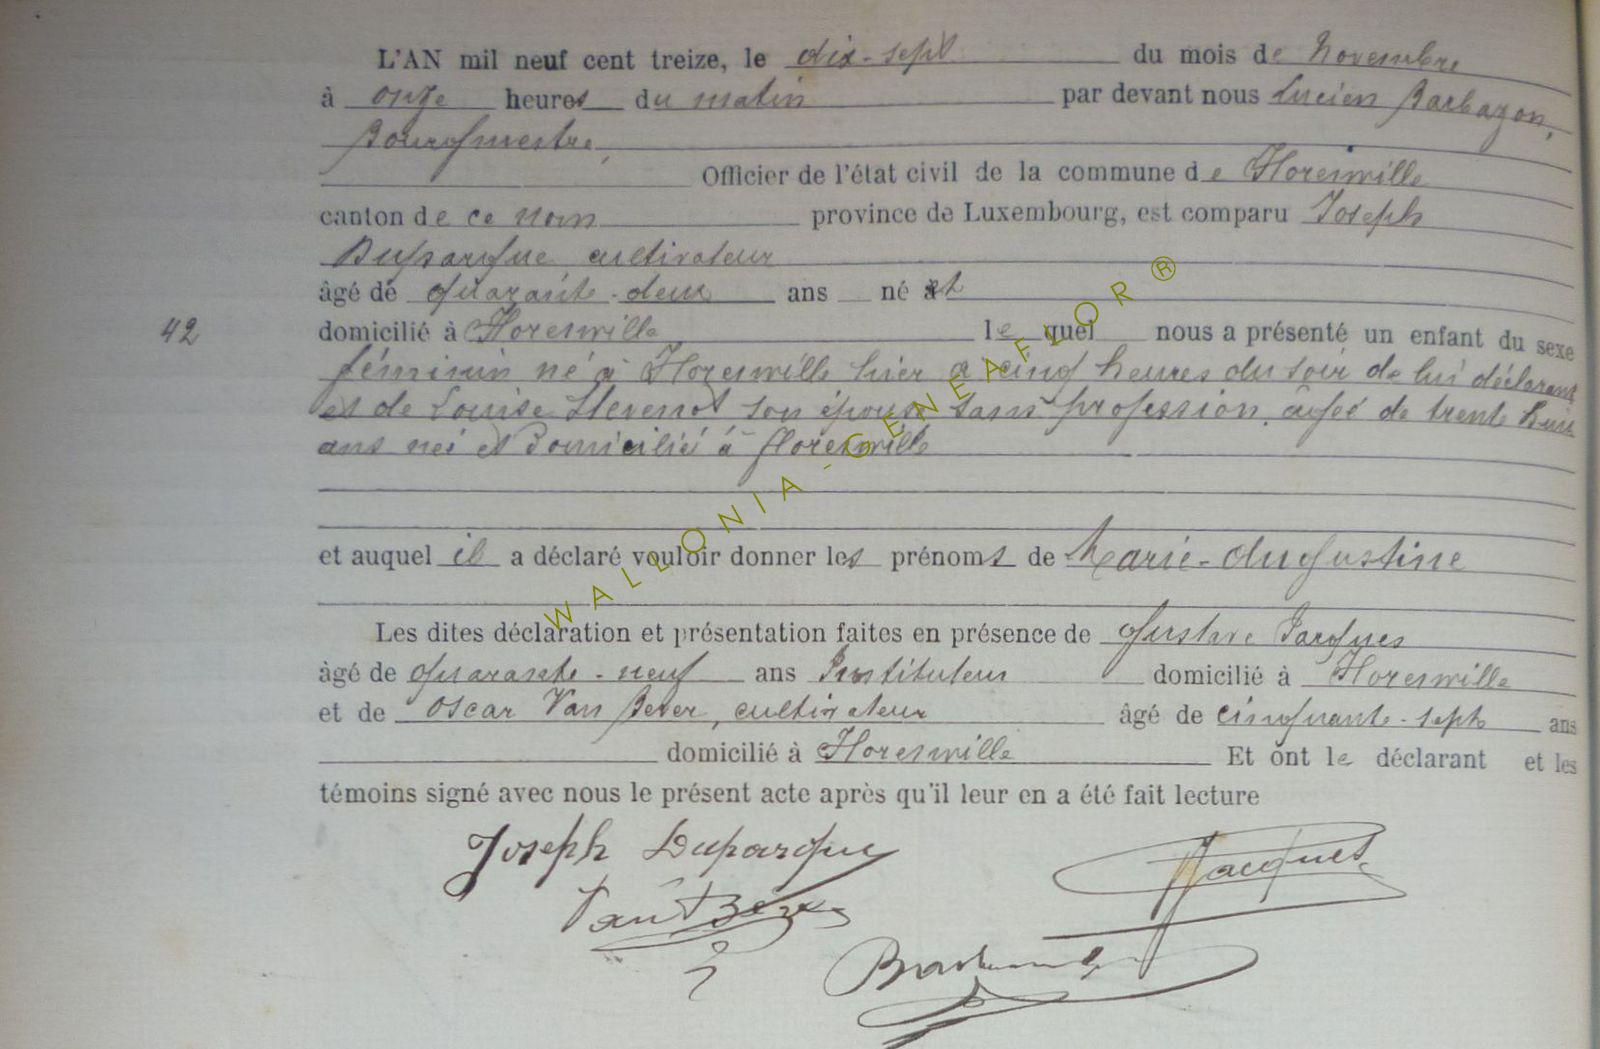 L'AN mil neuf cent treize, le dix-sept du mois de Novembre
à onze heures du matin par devant nous Lucien Barbazon,
Bourgmestre,
Officier de l'état civil de la commune de Florenville
canton de ce nom province de Luxembourg, est comparu Joseph
Duparque cultivateur
âgé de quarante-deux ans né et
42 domicilié à Florenville lequel nous a présenté un enfant du sexe
féminin né à Florenville hier à cinq heures du soir de lui déclarant
et de Louise Stevenot son épouse sans profession, âgée de trente huit
ans née et domicilié à florenville
et auquel il a déclaré vouloir donner les prénoms de Marie-Augustine
Les dites déclaration et présentation faites en présence de Gustave Jacques
âgé de quarante-neuf ans Instituteur domicilié à Florenville
et de Oscar Van Bever, cultivateur âgé de cinquante-sept ans
domicilié à Florenville Et ont le déclarant et les
témoins signé avec nous le présent acte après qu'il leur en a été fait lecture
Joseph Duparque
GJacques
Van Bever
WALLONIA-GENEAFLOR®